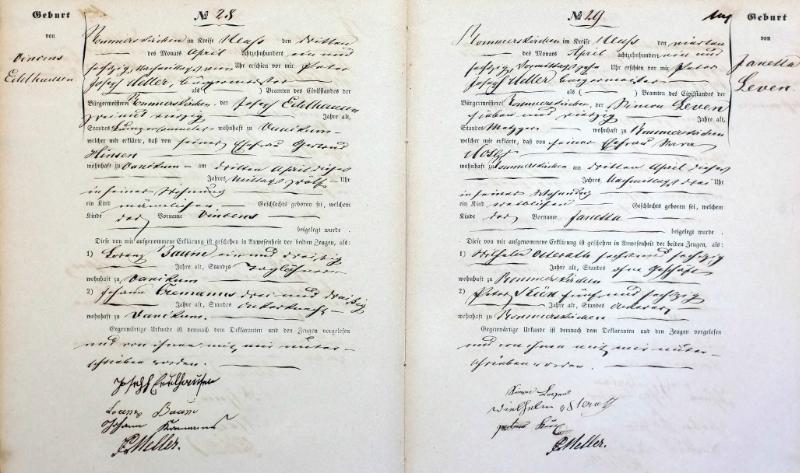 Geburt
von
Vincens
Edelhausen
№ 28
Rommerskirchen im Kreise Neuss den dritten
des Monats April achtzehnhundert ein und
sechzig, Nachmittags vier Uhr erschien vor mir Peter
Joseph Meller, Bürgermeister
als ( ) Beamten des Civilstandes der
Bürgermeisterei Rommerskirchen, der Joseph Edelhausen
zwei und vierzig Jahre alt,
Standes wohnhaft zu Vanikum
welcher mir erklärte, daß von seiner Ehefrau Gertrud
Hinsen
wohnhaft zu Vanikum am dritten April dieses
Jahres, Mittags zwölf Uhr
in seiner Wohnung
ein Kind männlichen Geschlechts geboren sei, welchem
Kinde der Vorname Vincens
beigelegt wurde.
Diese von mir aufgenommene Erklärung ist geschehen in Anwesenheit der beiden Zeugen, als:
1) Lorenz Baum ein und dreißig
Jahre alt, Standes Taglöhner
wohnhaft zu Vanikum
2) Johann drei und dreißig
Jahre alt, Standes Ackerknecht
wohnhaft zu Vanikum.
Gegenwärtige Urkunde ist demnach dem Deklaranten und den Zeugen vorgelesen
und von ihnen mit mir unter-
schrieben worden.
Joseph Edelhausen
Lorenz Baum
Johann
PJMeller.
№ 29
Geburt
von
Janetta
Leven.
Rommerskirchen im Kreise Neuss den vierten
des Monats April achtzehnhundert ein und
sechzig, Vormittags Uhr erschien vor mir Peter
Joseph Meller Bürgermeister
als ( ) Beamten des Civilstandes der
Bürgermeisterei Rommerskirchen, der Simon Leven
sieben und vierzig Jahre alt,
Standes Metzger wohnhaft zu Rommerskirchen
welcher mir erklärte, daß von seiner Ehefrau Sara
wohnhaft zu Rommerskirchen am dritten April dieses
Jahres, Nachmittags drei Uhr
in seiner Wohnung
ein Kind weiblichen Geschlechts geboren sei, welchem
Kinde der Vorname Janetta
beigelegt wurde.
Diese von mir aufgenommene Erklärung ist geschehen in Anwesenheit der beiden Zeugen, als:
1) Wilhelm Odenrath sechzig
Jahre alt, Standes ohne Geschäft
wohnhaft zu Rommerskirchen
2) Peter fünf und sechzig
Jahre alt, Standes Ackerer
wohnhaft zu Rommerskirchen
Gegenwärtige Urkunde ist demnach dem Deklaranten und den Zeugen vorgelesen
und von ihnen mit mir unter-
schrieben worden.
Simon
Wilhelm
PJMeller.